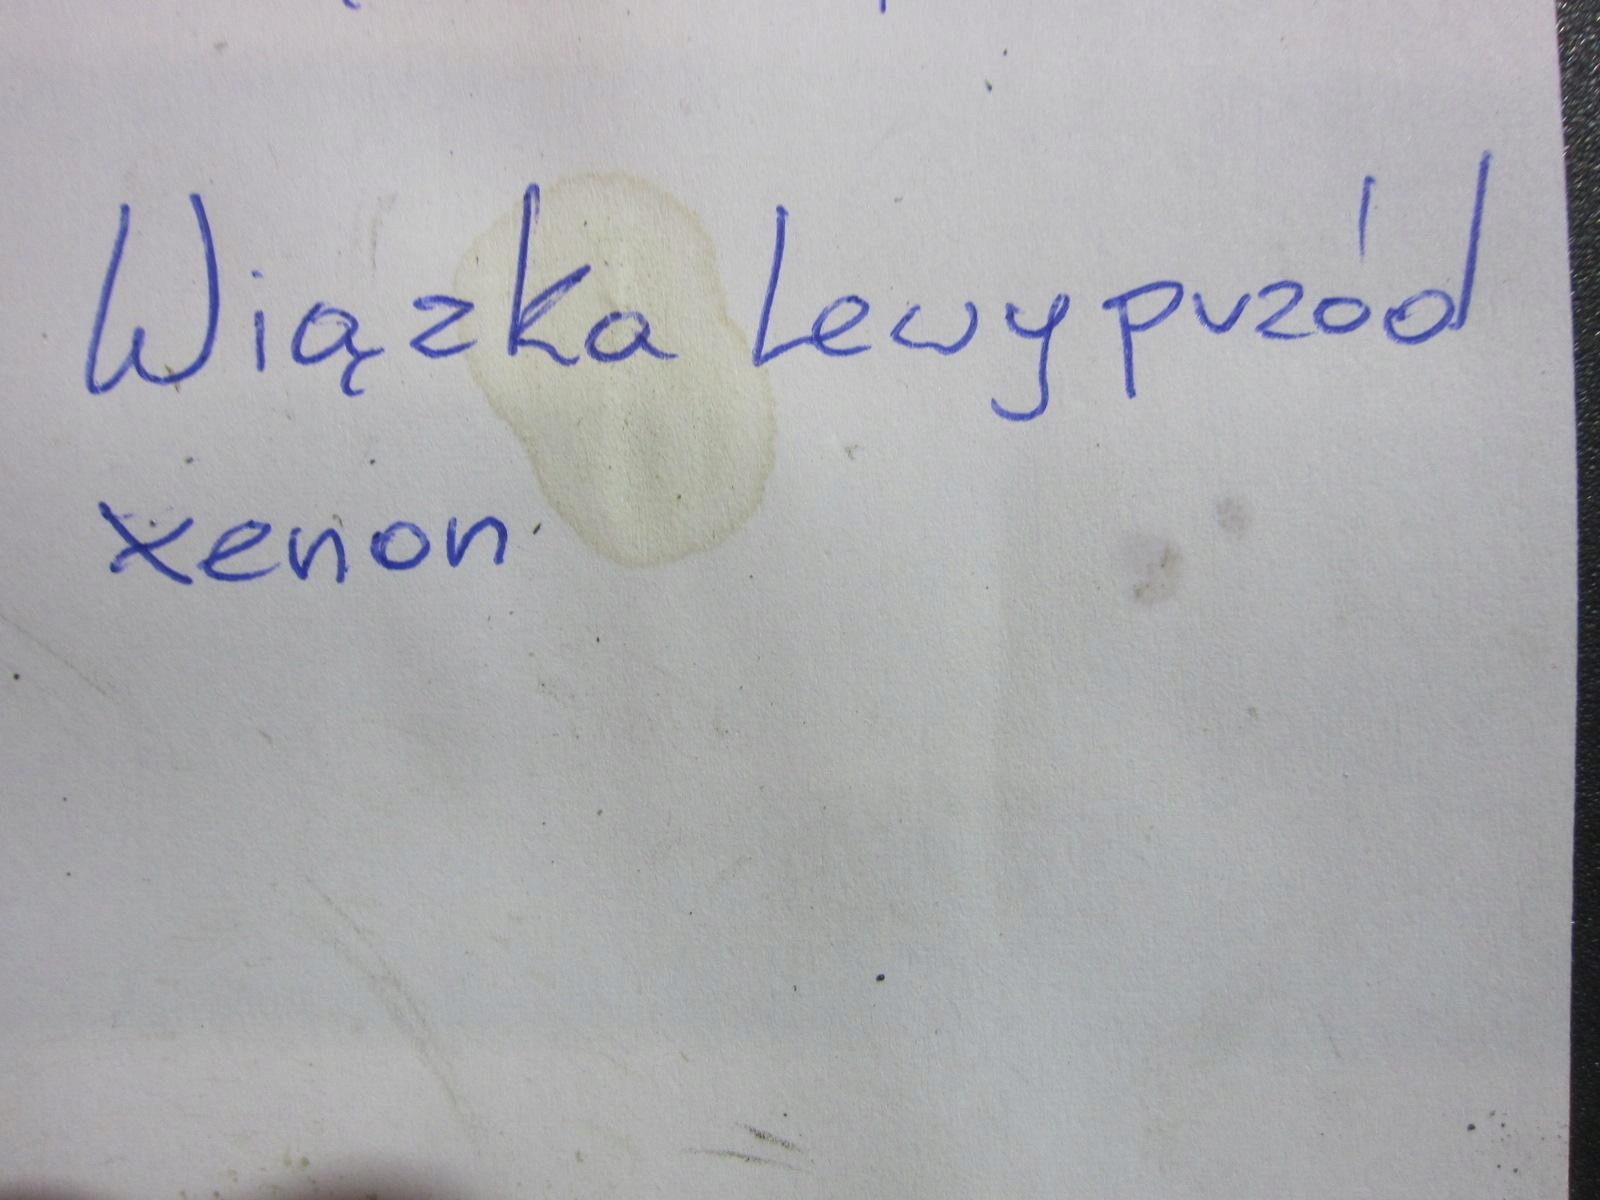 Wiązka Lewy przód
xenon